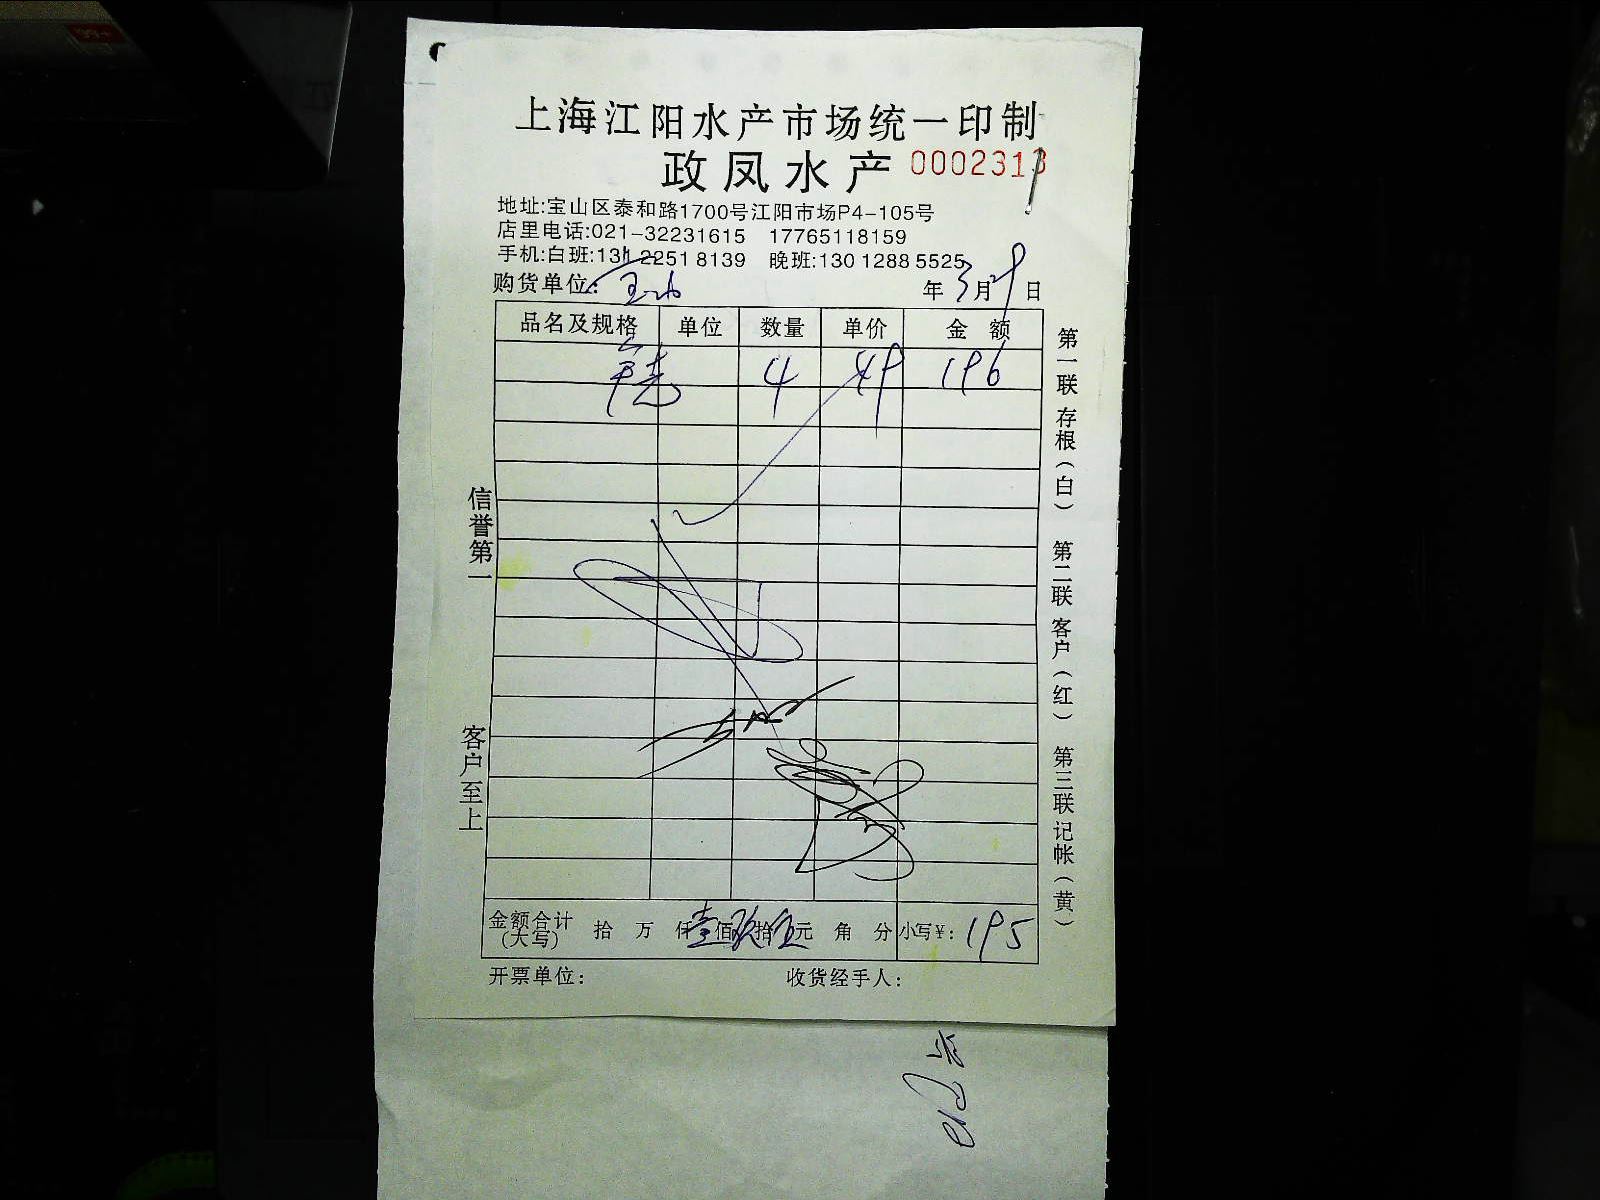 上海江阳水产市场统一印制
政凤水产 0002313
地址:宝山区泰和路1700号江阳市场P4-105号
店里电话:021-32231615 17765118159
手机:白班:131 2251 8139 晚班:130 1288 5525
购货单位:
年 3 月 29 日
品名及规格 单位 数量 单价 金额
4 49 196
第一联存根(白) 第二联客户(红) 第三联记帐(黄)
信誉第一
客户至上
金额合计(大写) 拾 万 仟 壹 佰 玖 拾 伍 元 角 分 小写¥: 195
开票单位: 收货经手人: